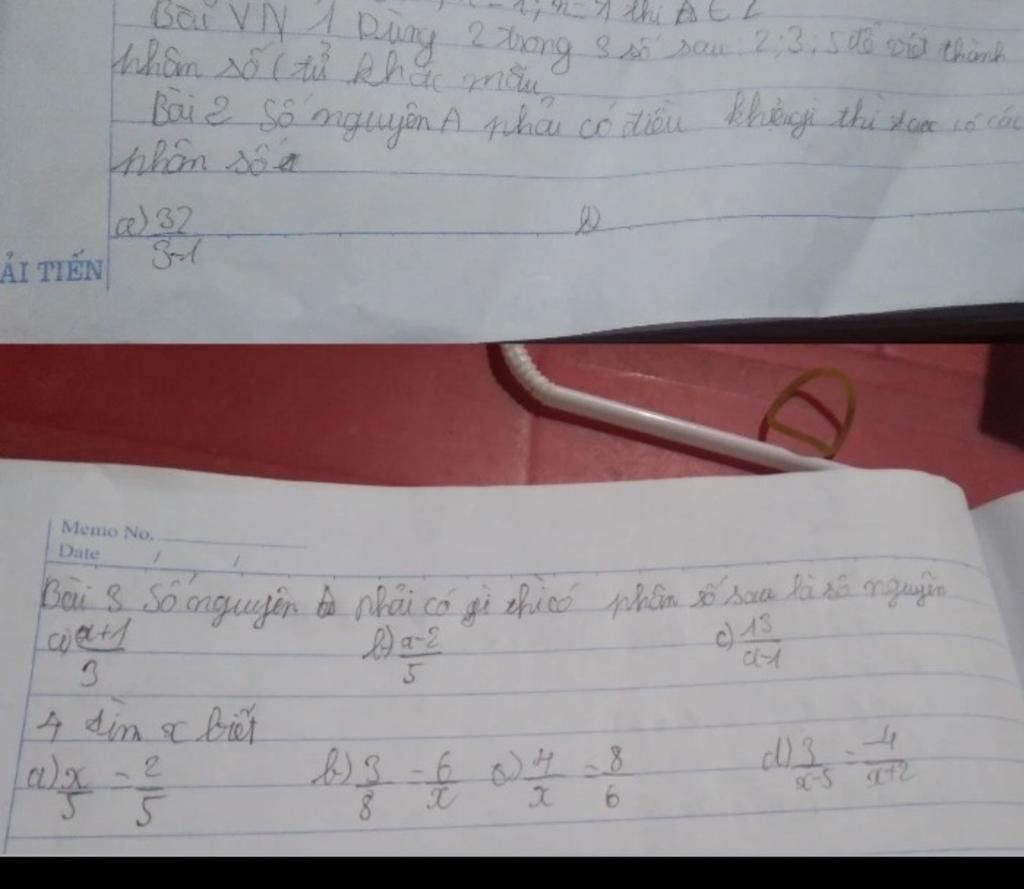 thì A ∈ Z
Bài VN 1 Dùng 2 trong 3 số sau 2; 3; 5 để viết thành
phân số (tử khác mẫu
Bài 2 Số nguyên A phải có điều kiện gì thì có các
phân số
a) 32/3-1 b)
ẢI TIẾN
Memo No.
Date / /
Bài 3 Số nguyên phải có gì thì có phân số sau là số nguyên
a) a+1/3 b) a-2/5 c) 13/a-1
4 tìm x biết
a) x/5 = 2/5 b) 3/8 = 6/x c) 4/x = 8/6 d) 3/x-5 = -4/x+2